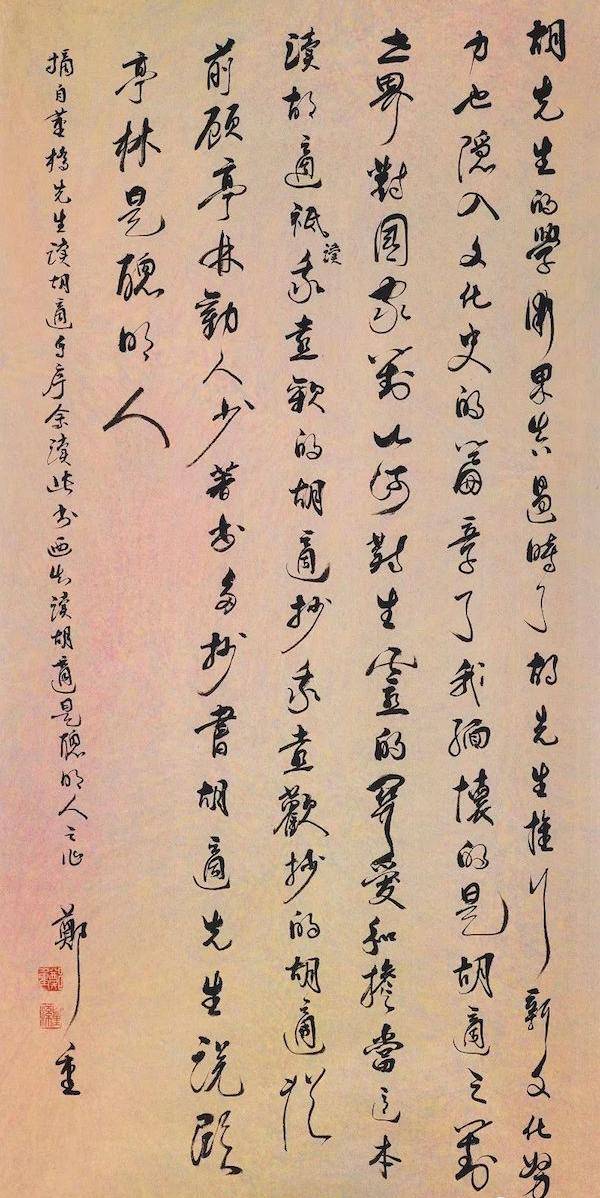 胡先生的學術果真過時了胡先生推行新文化努
力也隱入文化史的篇章了我緬懷的是胡適之對
世界對國家對山河對生靈的關愛和擔當這本
讀胡適祇讀我喜歡的胡適抄我喜歡抄的胡適從
前顧亭林勸人少著書多抄書胡適先生說顧
亭林是聰明人
摘自董橋先生讀胡適序余讀此書讀胡適是聰明人之作 鄭重